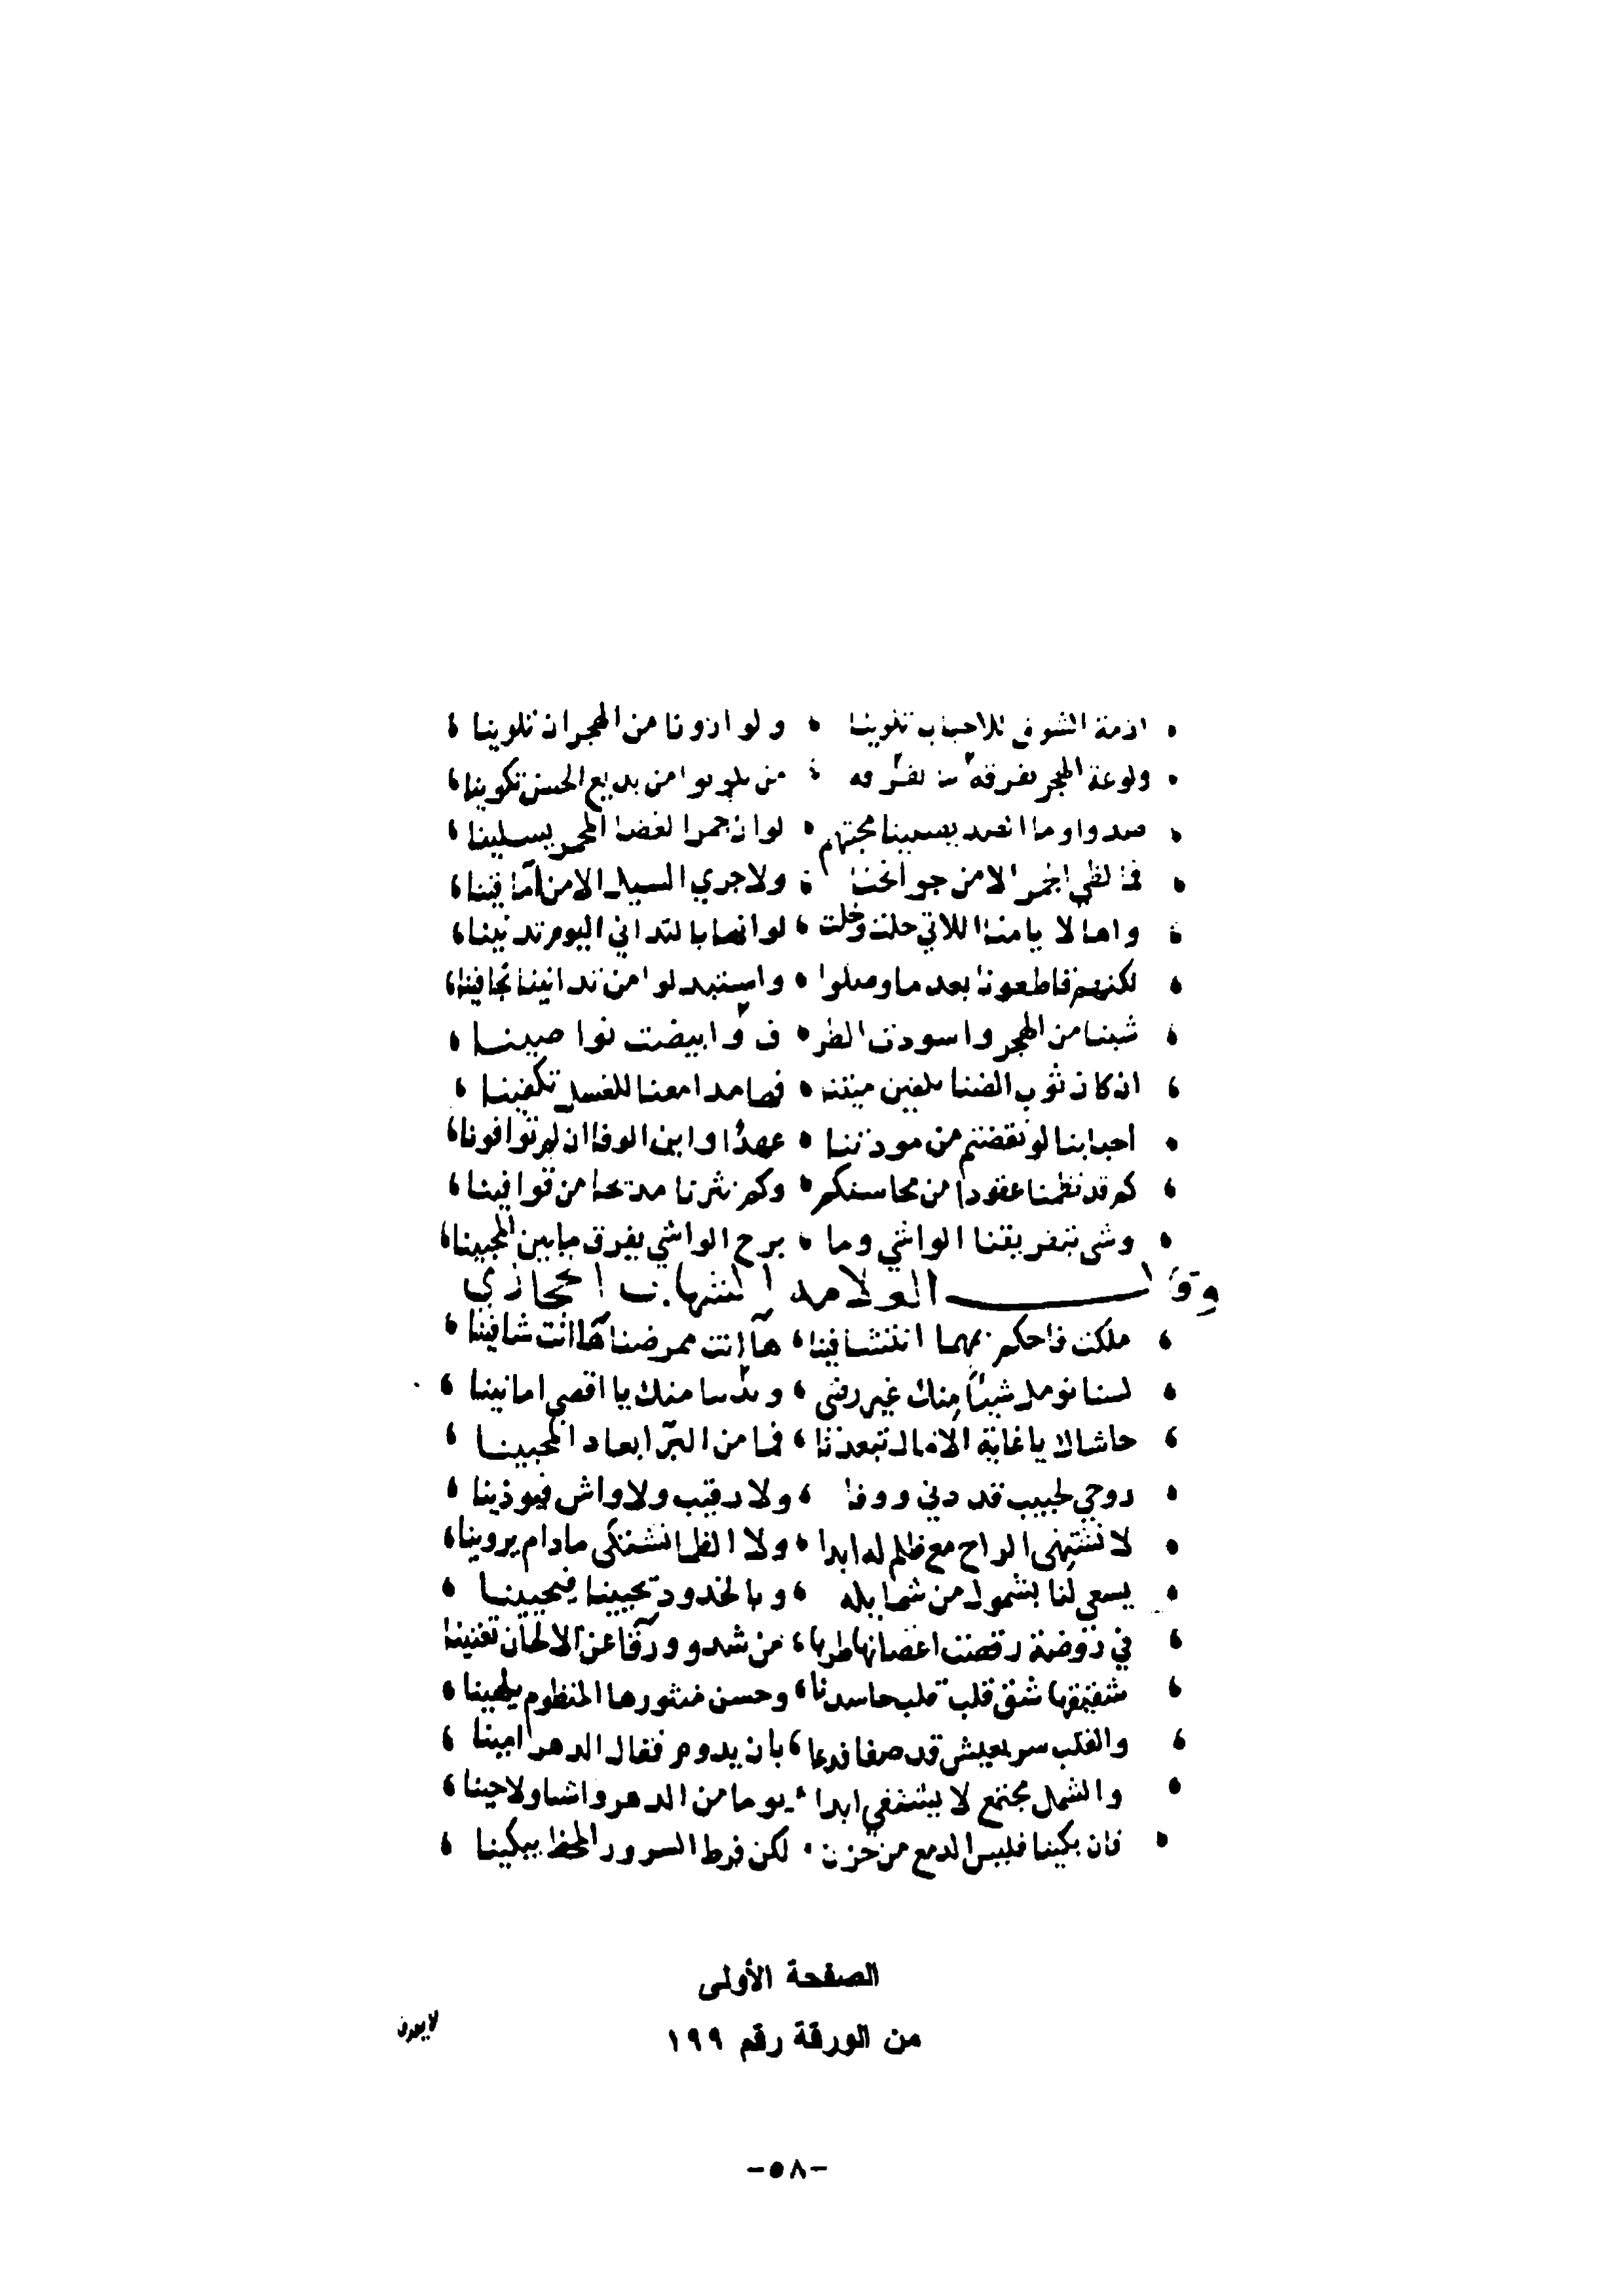 ازمة الشوق للاحباب تلوينا ولو ازونا من الهجران تلوينا
ولوعة الهجر نفرقه من بديع الحسن تكوينا
صدوا وما الصد يصبينا لو ان جمر الغضا يسلينا
فما لظى الجمر الا من جوانحنا ولا جري السيل الا من آماقينا
واها لايامنا اللاتي حلت وخلت لو انها بالتداني اليوم تدنينا
لكنهم قاطعونا بعد ما وصلوا واستبدلوا من تدانينا تجافينا
شبنا من الهجر واسودت الطر ف وابيضت نواصينا
ان كان ثوب الضنا فها مدامعنا للغسل تكفينا
احبابنا لو نقضتم من مودتنا عهدا واين الوفا ان لم توافونا
كم قد نظمنا عقودا من محاسنكم وكم نثرنا مدتحا من قوافينا
وشى بتفريقنا الواشي وما برح الواشي يفرق ما بين المحبينا
وقال العلامه الشهاب الحجازي
ملكت فاحكم بهما انت شافينا ها انت ممرضنا ها انت شافينا
لسنا نومل شيئا منك غير رضى منك يا اقصى امانينا
حاشاك يا غاية الامال تبعدنا فما من البر ابعاد المحبينا
روحي لحبيب قد دنى ووفا ولا رقيب ولا واش فيوذينا
لا نشتهى الراح مع ظلم له ابدا ولا الظما نشتكى مادام يروينا
يسعى لنا بشمول من شمايله وبالخدود تحيينا فيحيينا
في روضة رقصت اغصانها طربا من شدو ورقا عن الالحان تغنينا
شقيقها شق قلب قلب حاسدنا وحسن منثورها المنظوم يلهينا
والقلب سر بعيش قد صفا فدعا بان يدوم فقال الدهر امينا
والشمل مجتمع لا يشتفي ابدا يوما من الدهر واشيا ولا حينا
فان بكينا فليس الدمع من حزن لكن فرط السرور المحظ يبكينا
الصفحة الأولى
من الورقة رقم ١٩٩
-٥٨-